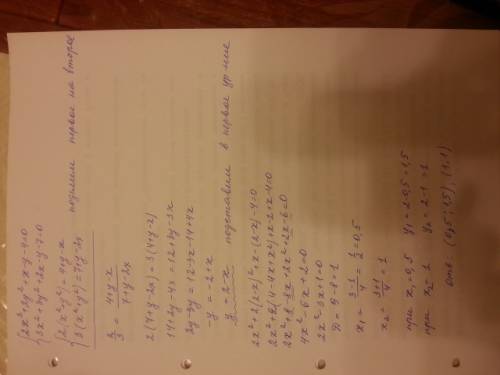 {2x²+2y²+x-y-4=0
{3x²+3y²+2x-y-7=0
{2(x²+y²)=4+y-x
{3(x²+y²)=7+y-2x поделим первое на второе
2/3 = (4+y-x)/(7+y-2x)
2(7+y-2x)=3(4+y-x)
14+2y-4x=12+3y-3x
2y-3y=12-3x-14+4x
-y=-2+x
y=2-x подставим в первое ур-ние
2x²+2(2-x)²+x-(2-x)-4=0
2x²+2(4-4x+x²)+x-2+x-4=0
2x²+8-8x+2x²+2x-6=0
4x²-6x+2=0
2x²-3x+1=0
D=9-8=1
x₁=(3-1)/4=1/2=0,5
x₂=(3+1)/4=1
при x₁=0,5 y₁=2-0,5=1,5
при x₂=1 y₂=2-1=1
отв: (0,5;1,5), (1;1)